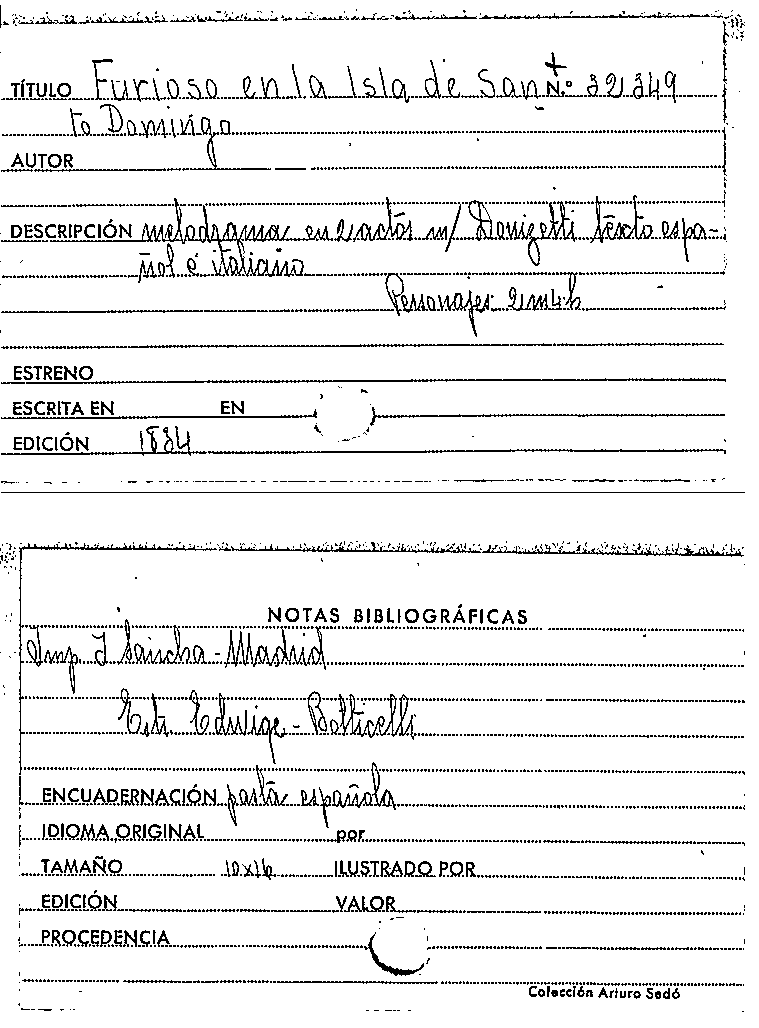 TÍTULO Furioso en la Isla de San+ N.º 32349
to Domingo
AUTOR
DESCRIPCIÓN melodrama en 2 actos m/ Donizetti texto espa-
ñol é italiano
Personajes: 2 m 4 h
ESTRENO
ESCRITA EN EN
EDICIÓN 1834
NOTAS BIBLIOGRÁFICAS
Imp I Sancha - Madrid
Est. Edwige - Botticelli
ENCUADERNACIÓN pasta española
IDIOMA ORIGINAL por
TAMAÑO 10x16 ILUSTRADO POR
EDICIÓN VALOR
PROCEDENCIA
Colección Arturo Sedó